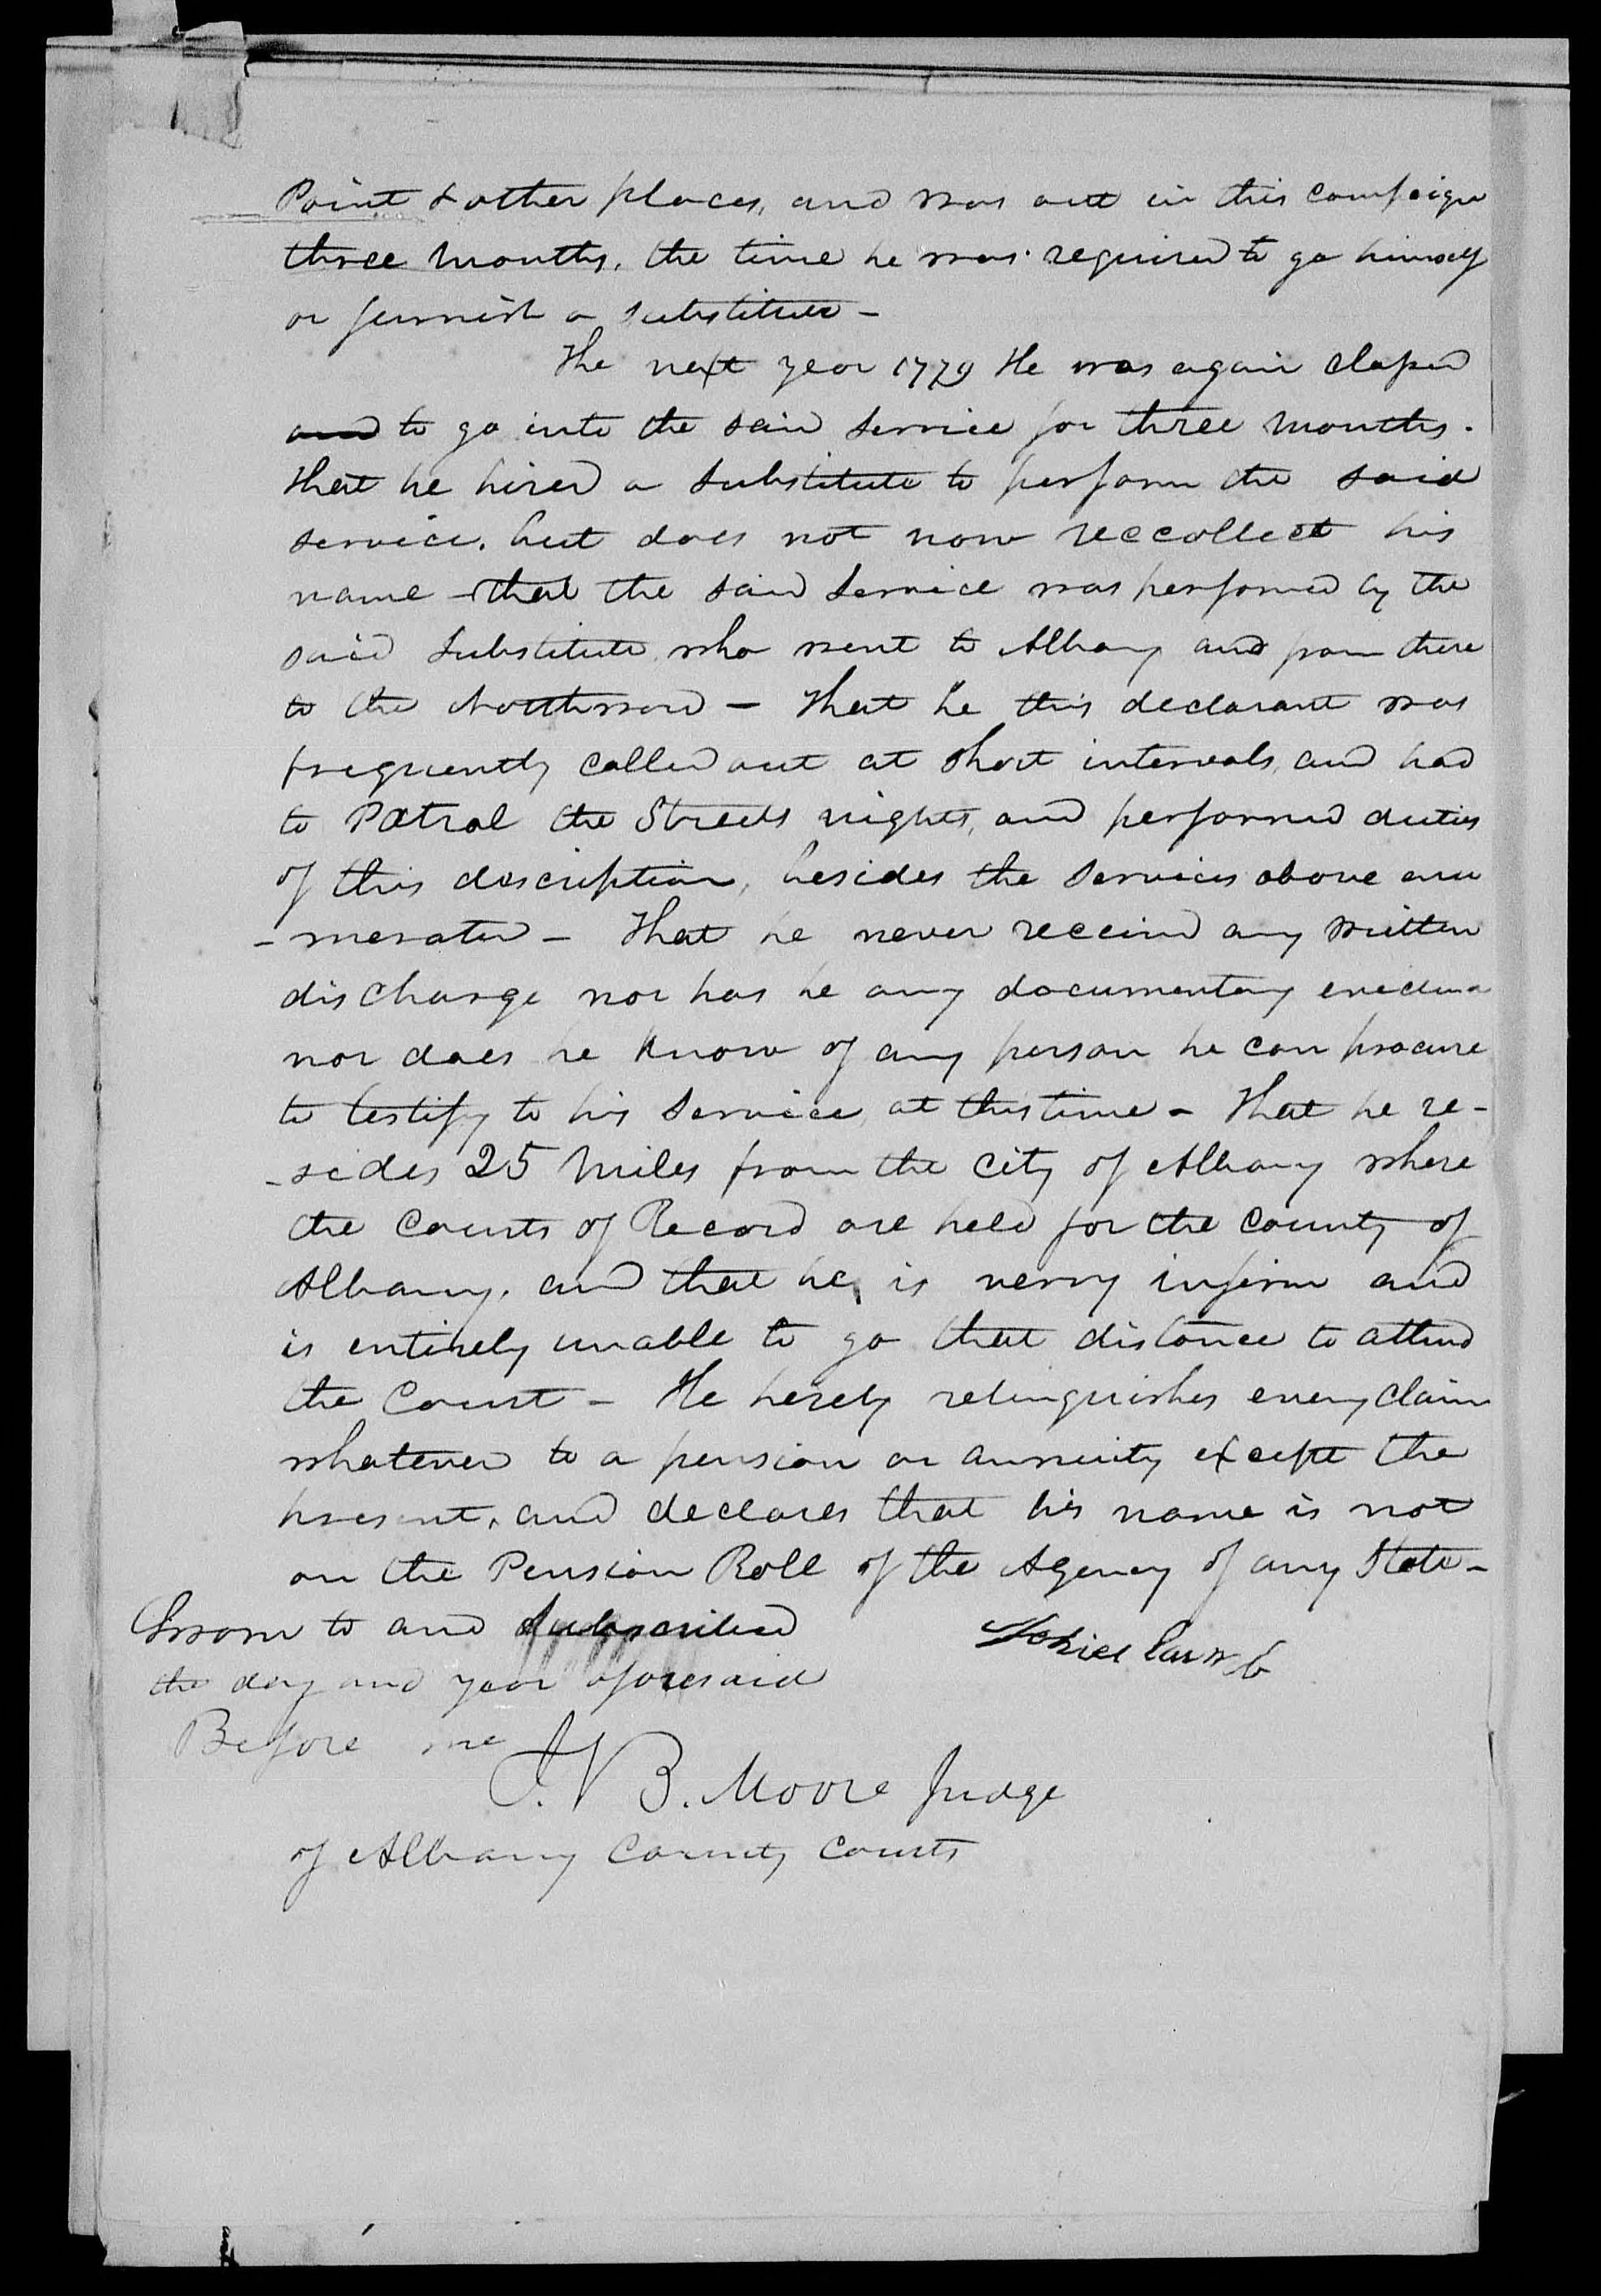 Point & other places, and was out in this campaign
three months, the time he was required to go himself
or furnish a substitute -
The next year 1779 He was again classed
and to go into the said service for three months.
that he hired a substitute to perform the said
service, but does not now reccollect his
name - that the said service was performed by the
said substitute who went to Albany and from there
to the Northward - That he this declarant was
frequently called out at short intervals, and had
to Patrol the Streets nights, and performed duties
of this description, besides the services above enu
- merated - That he never received any written
discharge nor has he any documentary evidence
nor does he know of any person he can procure
to testify to his service, at this time - That he re-
- sides 25 miles from the city of Albany where
the Courts of Record are held for the County of
Albany, and that he is verry infirm and
is entirely unable to go that distance to attend
the Court - He hereby relinquishes every claim
whatever to a pension or annuity except the
present, and declares that his name is not
on the Pension Roll of the Agency of any State -
Sworn to and Subscribed
the day and year aforesaid
Before me
J. V B. Moore Judge
of Albany County Courts